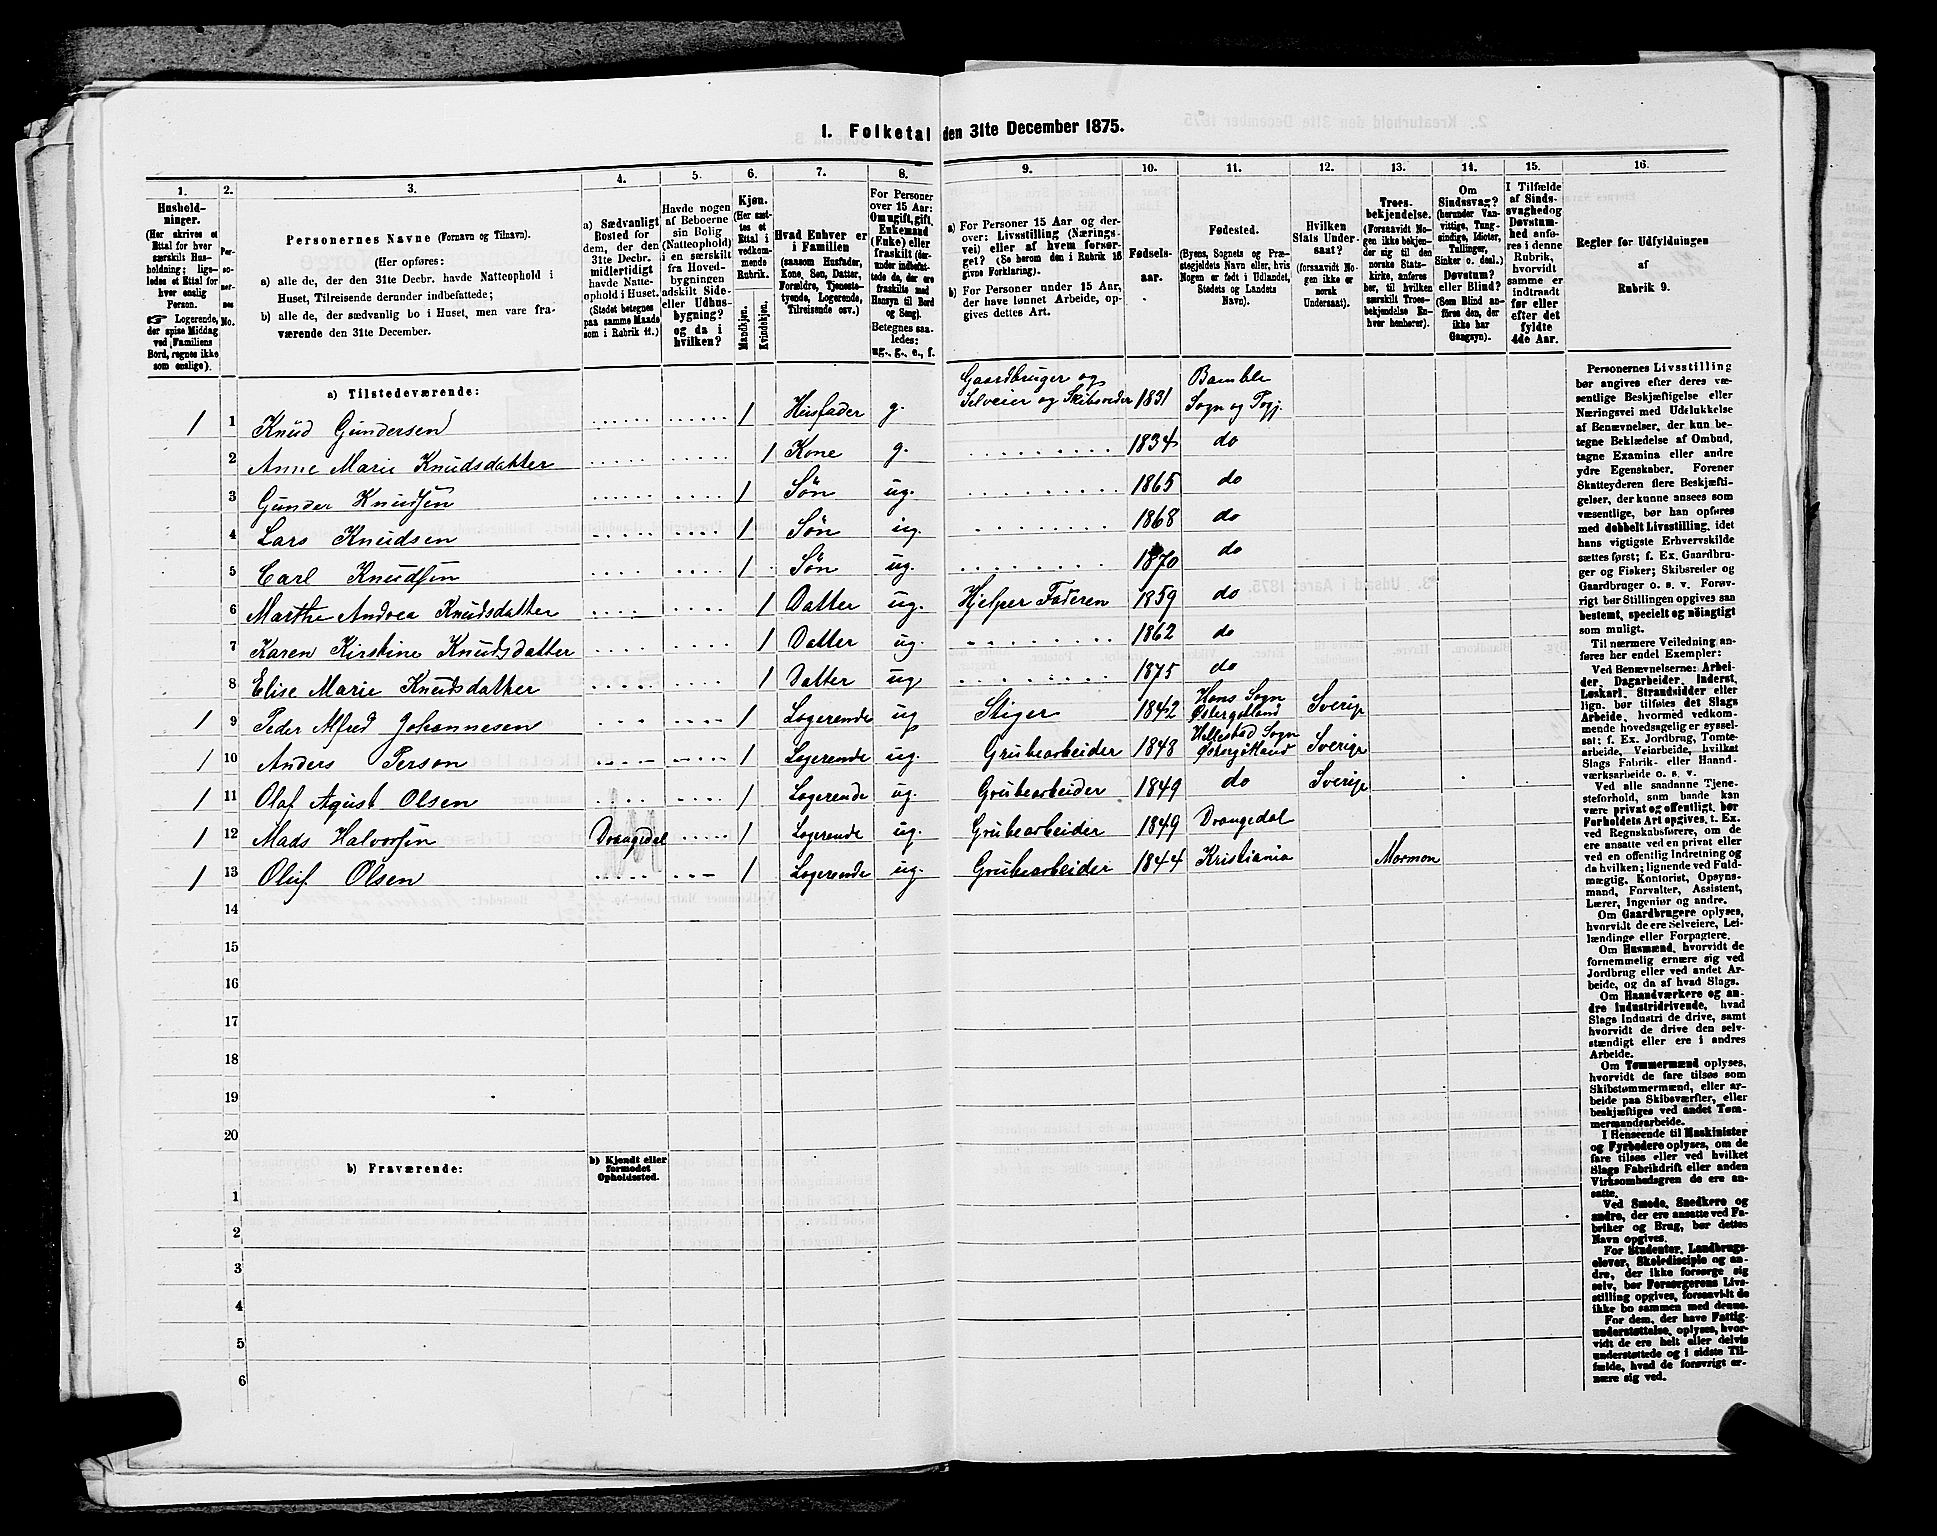 1. Folketal den 31te December 1875.
1. 2. 3. 4. 5. 6. 7. 8. 9. 10. 11. 12. 13. 14. 15. 16.
Hushold-
ninger.
(Her skrives et
Ettal for hver
særskilt Hus-
holdning; lige-
ledes et Ettal for
hver enslig
Person.
☞ Logerende,
der spise Middag
ved Familiens
Bord, regnes ikke
som enslige).
Per-
so-
ner-
nes
No.
Personernes Navne (Fornavn og Tilnavn).
(Her opføres:
a) alle de, der den 31te Decbr. havde Natteophold i
Huset, Tilreisende derunder indbefattede;
b) alle de, der sædvanlig bo i Huset, men vare fra-
værende den 31te December.
a) Sædvanligt
Bosted for
dem, der den
31te Decbr.
midlertidigt
havde Natte-
ophold i Huset.
(Stedet betegnes
paa samme Maade
som i Rubrik 11.)
Havde nogen
af Beboerne
sin Bolig
(Natteophold)
i en særskilt
fra Hoved-
bygningen
adskilt Side-
eller Udhus-
bygning?
og da i
hvilken?
Kjøn.
(Her sæt-
tes et
Ettal i
vedkom-
mende
Rubrik.
Mandkjøn.
Kvindekjøn.
Hvad Enhver er
i Familien
(saasom Husfader,
Kone, Søn, Datter,
Forældre, Tjeneste-
tyende, Logerende,
Tilreisende osv.)
For Personer
over 15 Aar:
Om ugift, gift,
Enkemand
(Enke) eller
fraskilt (der-
under indbefat-
tede de, der ere
fraskilte med
Hensyn til Bord
og Seng).
Betegnes saa-
ledes:
ug., g., e., f.
a) For Personer 15 Aar og der-
over: Livsstilling (Nærings-
vei) eller af hvem forsør-
get? (Se herom den i Rubrik 16
givne Forklaring).
b) For Personer under 15 Aar,
der have lønnet Arbeide, op-
gives dettes Art.
Fødsels-
aar.
Fødested.
(Byens, Sognets og Præ-
stegjeldets Navn eller, hvis
Nogen er født i Udlandet,
Stedets og Landets
Navn).
Hvilken
Stats Under-
saat?
(forsaavidt No-
gen ikke er
norsk
Undersaat).
Troes-
bekjendelse.
(Forsaavidt No-
gen ikke bekjen-
der sig til den
norske Stats-
kirke, anføres
her, til hvilken
særskilt Troes-
bekjendelse En-
hver henhører).
Om
Sindssvag?
(herunder Van-
vittige, Tung-
sindige, Idioter,
Tullinger,
Sinker o. desl.).
Døvstum?
eller Blind?
(Som Blind an-
føres den, der
ikke har
Gangsyn).
I Tilfælde
af Sinds-
svaghed og
Døvstum-
hed anfø-
res i denne
Rubrik,
hvorvidt
samme er
indtraadt
før eller
efter det
fyldte
4de Aar.
Regler for Udfyldningen
af
Rubrik 9.
a) Tilstedeværende:
1 1 Knud Gundersen 1 Husfader g. Gaardbruger og Selveier og Skibsreder 1831 Bamble Sogn og Pgj.
2 Anne Marie Knudsdatter 1 Kone g. 1834 do
3 Gunder Knudsen 1 Søn ug. 1865 do
4 Lars Knudsen 1 Søn ug. 1868 do
5 Carl Knudsen 1 Søn ug. 1870 do
6 Marthe Andrea Knudsdatter 1 Datter ug. Hjelper Faderen 1859 do
7 Karen Kirstine Knudsdatter 1 Datter ug. 1862 do
8 Elise Marie Knudsdatter 1 Datter ug 1875 do
1 9 Peder Alfred Johannesen 1 Logerende ug Stiger 1842 Hans Sogn Østergøtland Sverige
1 10 Anders Person 1 Logerende ug. Grubearbeider 1848 Hellestad Sogn Østergøtland Sverige
1 11 Olaf Agust Olsen 1 Logerende ug. Grubearbeider 1849 do Sverige
1 12 Mads Halvorsen Drangedal 1 Logerende ug. Grubearbeider 1849 Drangedal
1 13 Oluf Olsen 1 Logerende ug. Grubearbeider 1844 Kristiania Mormon
14
15
16
17
18
19
20
b) Fraværende:
b) Kjendt eller
formodet
Opholdssted.
1
2
3
4
5
6
Personernes Livsstilling
bør angives efter deres væ-
sentlige Beskjæftigelse eller
Næringsvei med Udelukkelse
af Benævnelser, der kun be-
tegne Beklædelse af Ombud,
tagne Examina eller andre
ydre Egenskaber. Forener
Skatteyderen flere Beskjæfti-
gelser, der kunne ansees som
væsentlige, bør han opføres
med dobbelt Livsstilling, idet
hans vigtigste Erhvervskilde
sættes først; f. Ex. Gaardbru-
ger og Fisker; Skibsreder og
Gaardbruger o. s. v. Forøv-
rigt bør Stillingen opgives saa
bestemt, specielt og nöiagtigt
som muligt.
Til nærmere Veiledning an-
føres her endel Exempler:
Ved Benævnelserne: Arbei-
der, Dagarbeider, Inderst,
Løskarl, Strandsidder eller
lign. bør tilføies det Slags
Arbeide, hvormed vedkom-
mende hovedsagelig er syssel-
sat; f. Ex. Jordbrug, Tomte-
arbeide, Veiarbeide, hvilket
Slags Fabrik- eller Haand-
værksarbeide o. s. v.
Ved alle saadanne Tjene-
steforhold, som baade kan
være privat og offentligt, bør
Forholdets Art opgives, t. Ex.
ved Regnskabsførere, om de
ere ansatte ved en privat eller
ved en offentlig Indretning og
da hvilken; lignende ved Fuld-
mægtig, Kontorist, Opsyns-
mand, Forvalter, Assistent,
Lærer, Ingeniør og andre.
Om Gaardbrugere oplyses,
hvorvidt de ere Selveiere, Lei-
lændinge eller Forpagtere.
Om Husmænd, hvorvidt de
fornemmelig ernære sig ved
Jordbrug eller ved andet Ar-
beide, og da af hvad Slags.
Om Haandværkere og an-
dre Industridrivende, hvad
Slags Industri de drive, samt
hvorvidt de drive den selv-
stændigt eller ere i andres
Arbeide.
Om Tømmermænd oplyses,
hvorvidt de fare tilsøs som
Skibstømmermænd, eller ar-
beide paa Skibsværfter, eller
beskjæftiges ved andet Tøm-
mermandsarbeide.
I Henseende til Maskinister
og Fyrbødere oplyses, om de
fare tilsøs eller ved hvilket
Slags Fabrikdrift eller anden
Virksomhedsgren de ere an-
satte.
Ved Smede, Snedkere og
andre, der ere ansatte ved Fa-
briker og Brug, bør dettes
Navn opgives.
For Studenter, Landbrugs-
elever, Skoledisciple og an-
dre, der ikke forsørge sig
selv, bør Forsørgerens Livs-
stilling opgives, forsaavidt de
ikke bo sammen med denne.
For dem, der have Fattig-
understøttelse, oplyses, hvor-
vidt de ere helt eller delvis
understøttede og i sidste Til-
fælde, hvad de forøvrigt er-
nære sig ved.